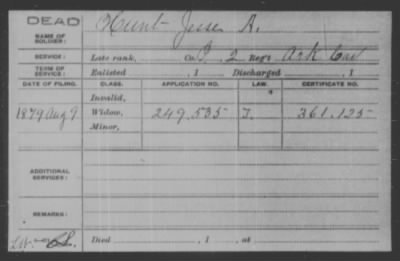 DEAD
NAME OF SOLDIER: Hunt Jesse A.
SERVICE: Late rank, Co. B, 2 Reg't Ark Cav
TERM OF SERVICE: Enlisted , 1 Discharged , 1
DATE OF FILING. CLASS. APPLICATION NO. LAW. CERTIFICATE NO.
Invalid,
1879 Aug 9 Widow, 249,535 J. 361,125
Minor,
ADDITIONAL SERVICES:
REMARKS:
Died , 1 , at